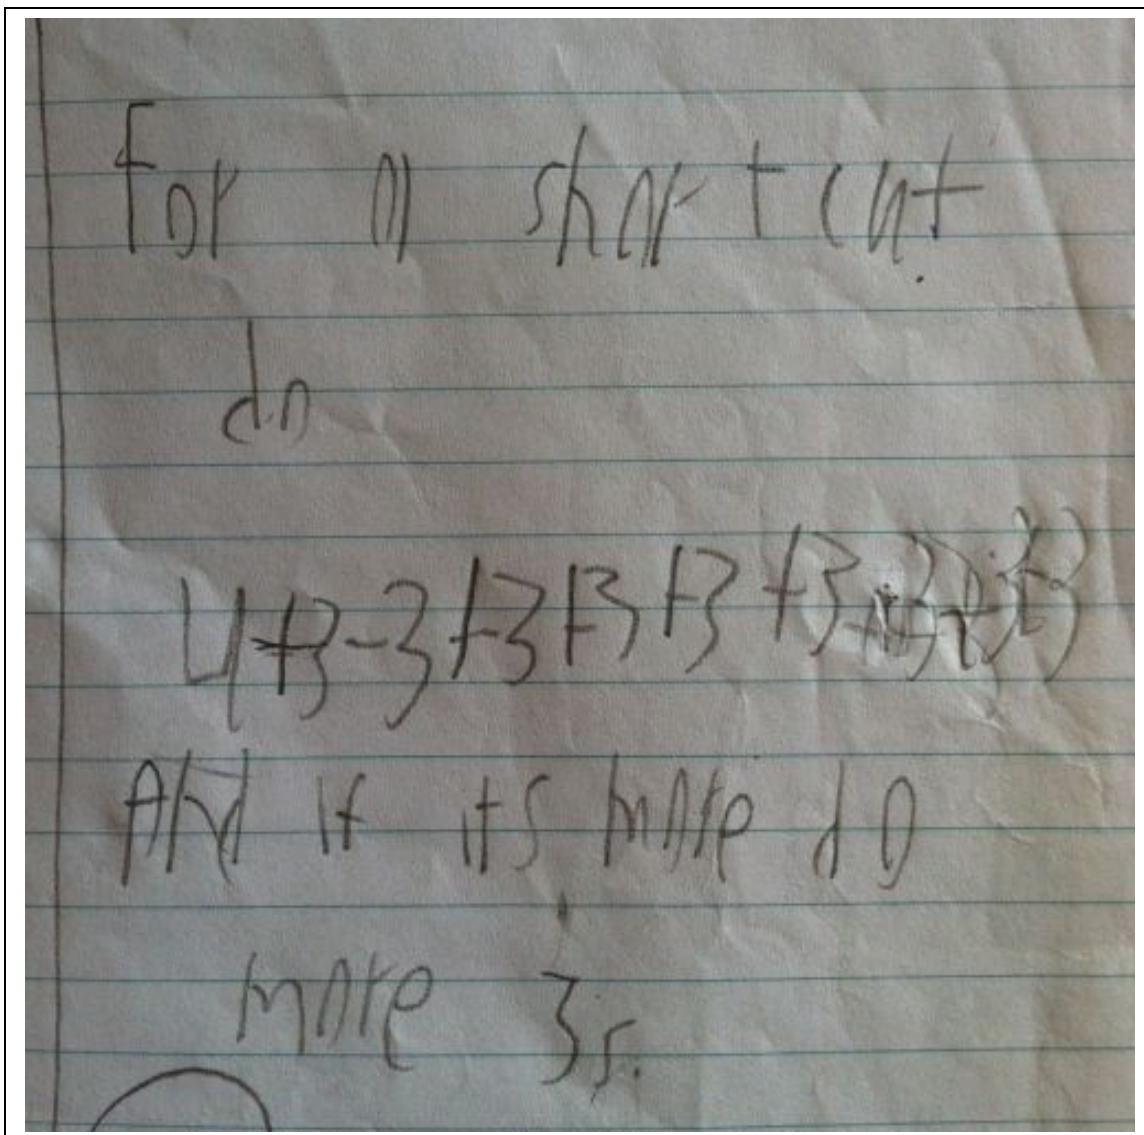 For a shortcut
do
4+3-3+3+3+3+3+3+3+3
And if its more do
more 3s.